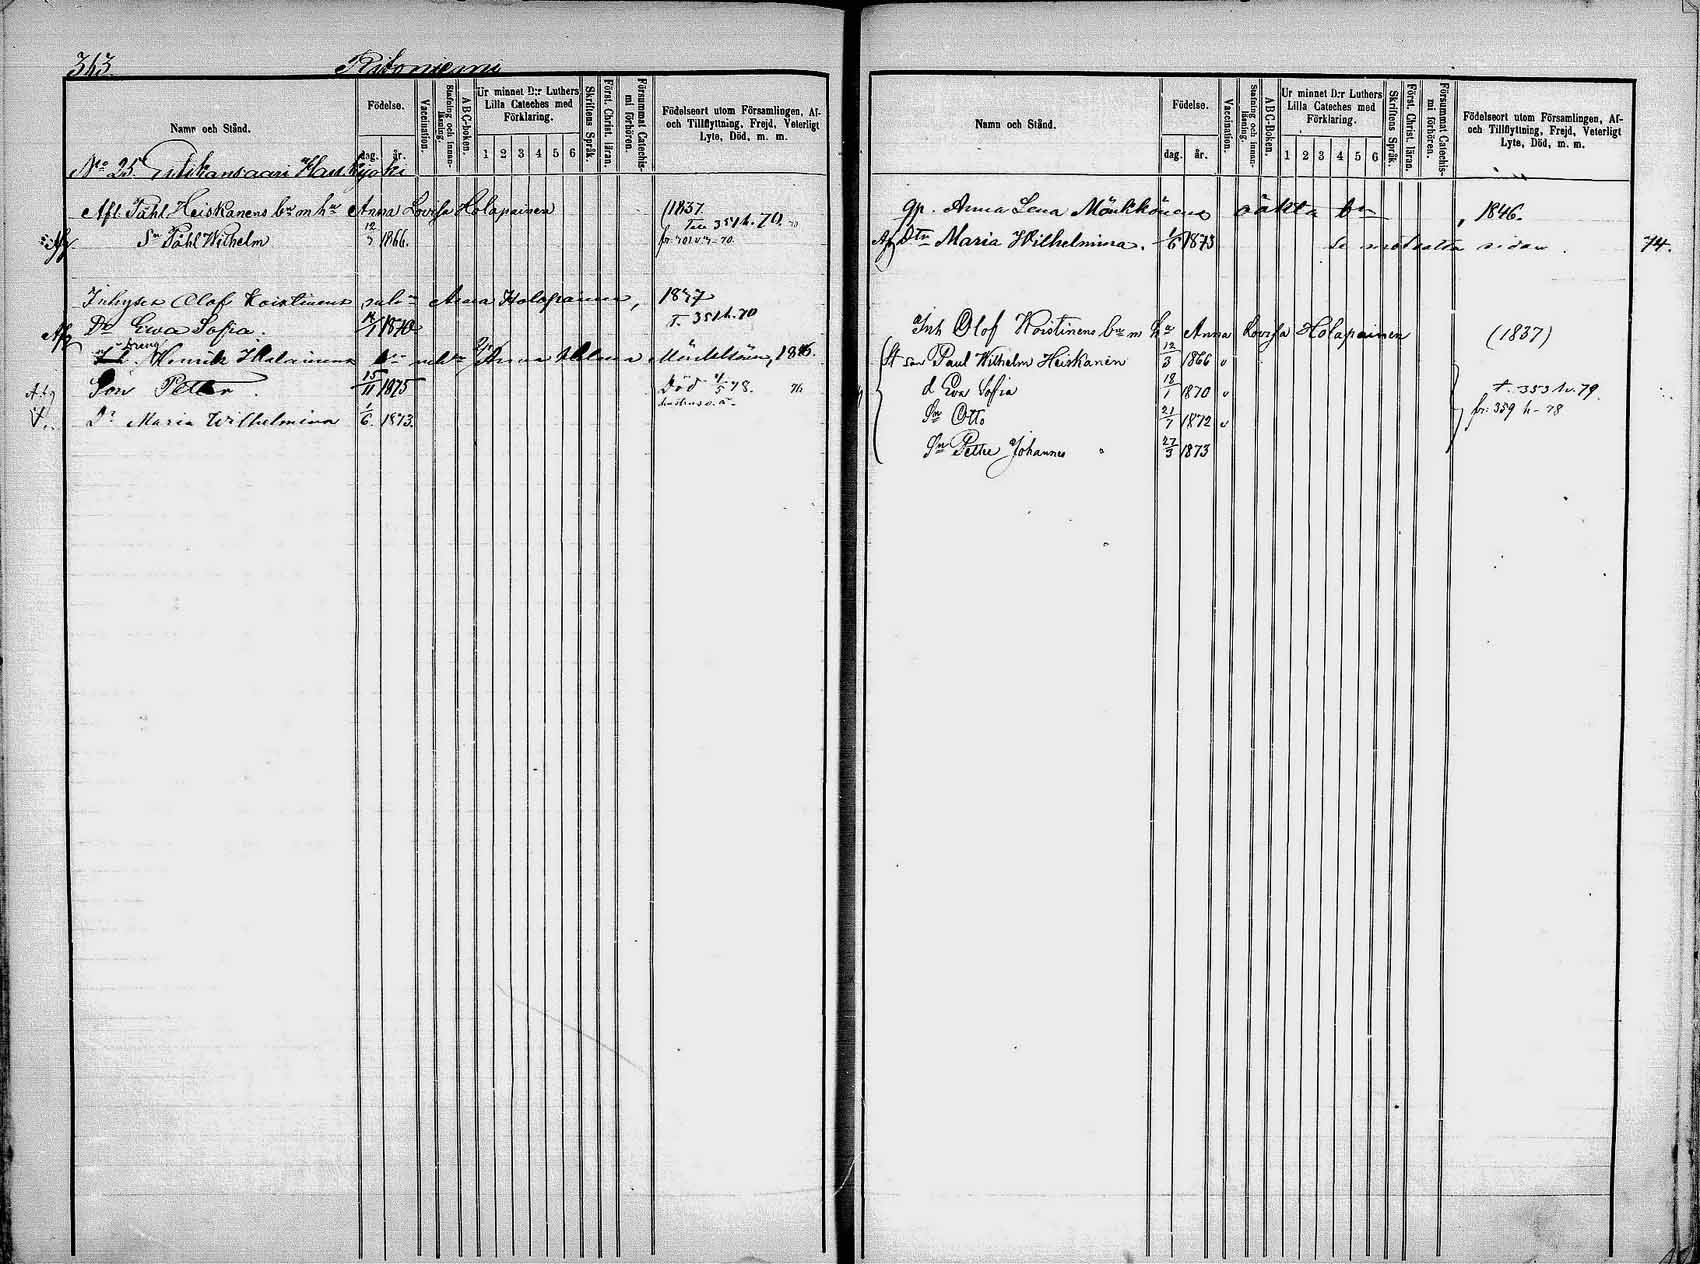 363. Ritoniemi
Namn och Stånd.
Födelse.
dag. år.
Vaccination.
Stafning och innan-läsning.
ABC-boken.
Ur minnet D:r Luthers Lilla Cateches med Förklaring.
1 2 3 4 5 6
Skriftens Språk.
Först. Christ. läran.
Försummat Catechis-mi förhören.
Födelseort utom Församlingen, Af- och Tillflyttning, Frejd, Veterligt Lyte, Död, m. m.
No 25. Pitkänsaari
Afl. Påhl Heiskanens bar m har Anna Lovisa Holapainen (1837.
Till 351 h. 70.
Sn Påhl Wilhelm 12/3 1866.
Inhyses Olof Koistinens Anna Holopainen, 1837
Dr Ewa Sofia. 18/1 1870 T. 351 h. 70
Dräng
Henrik Anna Helena Mönkkönen, 1846.
Son Petter. 15/11 1875 Död 78.
Dr Maria Wilhelmina 1/6 1873.
Namn och Stånd.
Födelse.
dag. år.
Vaccination.
Stafning och innan-läsning.
ABC-Boken.
Ur minnet D:r Luthers Lilla Cateches med Förklaring.
1 2 3 4 5 6
Skriftens Språk.
Först. Christ. läran.
Försummat Catechis-mi förhören.
Födelseort utom Församlingen, Af- och Tillflyttning, Frejd, Veterligt Lyte, Död, m. m.
gp. Anna Lena Mönkkönens oäkta bn 1846.
Dtr Maria Wilhelmina. 1/6 1873 se motsatta sidan. 74.
Inh Olof Koistinens bar m har Anna Lovisa Holapainen (1837)
St son Paul Wilhelm Heiskanen 12/3 1866 v
d Eva Sofia 18/1 1870 v t. 353 h. 79.
Sn Otto 21/7 1872 v fr. 359 h - 78
Sn Petter Johannes 27/3 1873